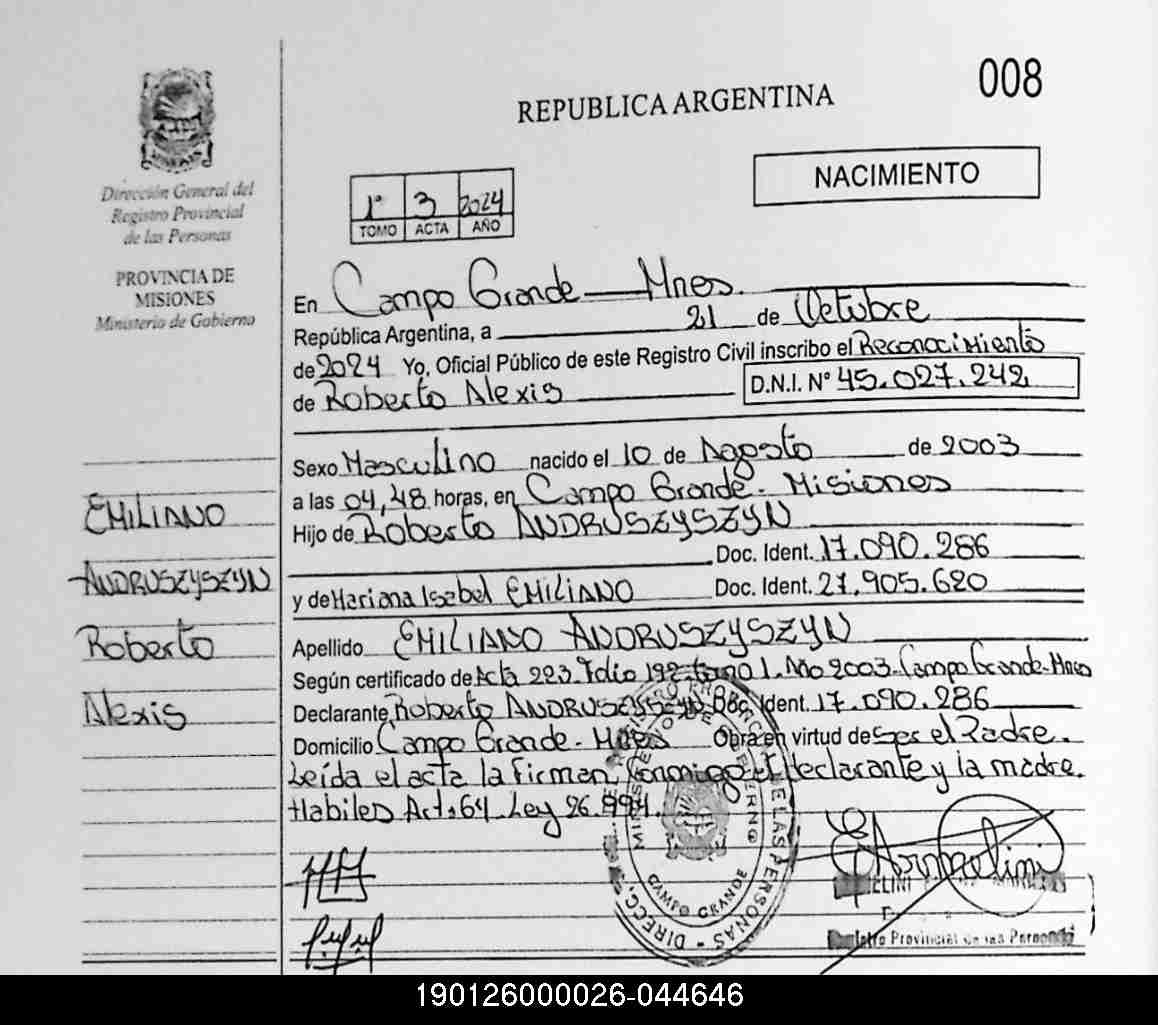 008
REPUBLICA ARGENTINA
NACIMIENTO
1° 3 2024
TOMO ACTA AÑO
Dirección General del
Registro Provincial
de las Personas
PROVINCIA DE
MISIONES
Ministerio de Gobierno
En Campo Grande - Mnes.
República Argentina, a 21 de Octubre
de 2024 Yo, Oficial Público de este Registro Civil inscribo el Reconocimiento
de Roberto Alexis D.N.I. N° 45.027.242
Sexo Masculino nacido el 10 de Agosto de 2003
a las 04,48 horas, en Campo Grande - Misiones
Hijo de Roberto ANDRUSZYSZYN
Doc. Ident. 17.090.286
y de Mariana Isabel EMILIANO Doc. Ident. 27.905.620
Apellido EMILIANO ANDRUSZYSZYN
Según certificado de Acta 223. Folio 192. tomo 1. Año 2003. Campo Grande-Mnes
Declarante Roberto ANDRUSZYSZYN Doc. Ident. 17.090.286
Domicilio Campo Grande - Mnes Obra en virtud de ser el Padre.
Leída el acta la firman conmigo el declarante y la madre.
Habiles Art. 64 Ley 26.994.
EMILIANO
ANDRUSZYSZYN
Roberto
Alexis
CAMPO GRANDE
DIRECC. PERSONAS
Registro Provincial de las Personas
190126000026-044646